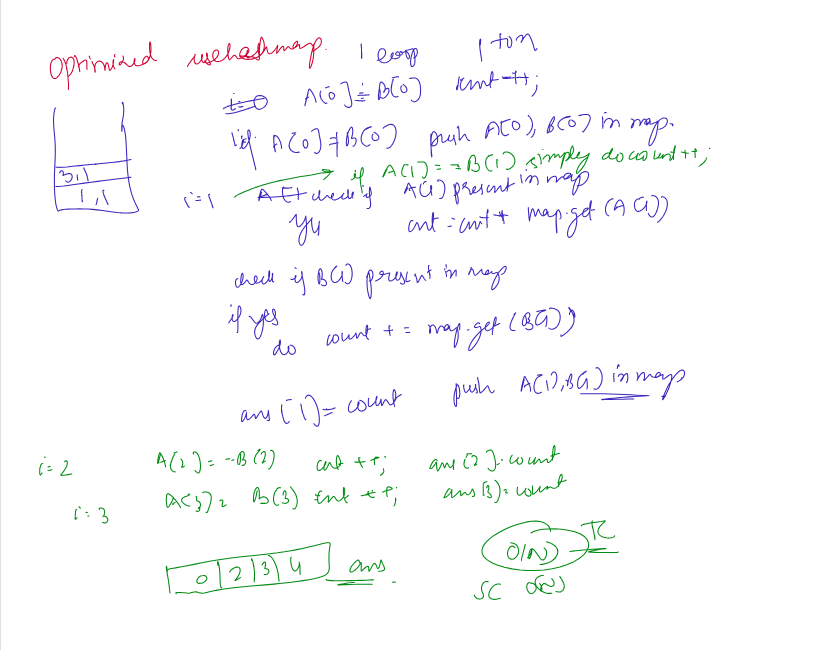 Optimized usehashmap. 1 loop 1 to n
i=0 A[0]==B[0] count++;
if A[0]≠B[0] push A[0), B[0) in map.
if A(1)==B(1) simply do count++;
i=1 A[1 check if A(1) present in map
3,1
1,1
cnt = cnt + map.get(A(1))
check if B(1) present in map
if yes
do count += map.get(B(1))
ans[1]= count push A(1),B(1) in map
i=2 A(2)==B(2) cnt ++; ans[2]=count
i=3 A(3)= B(3) cnt ++; ans(3)=count
0 2 3 4 ans
O(N) TC
SC O(N)